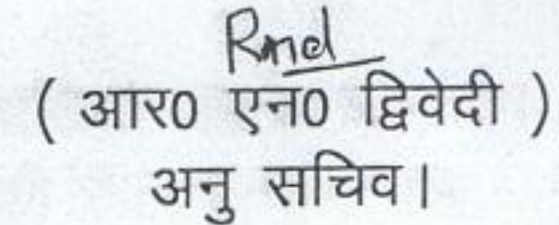 Rnd
( आर0 एन0 द्विवेदी )
अनु सचिव।